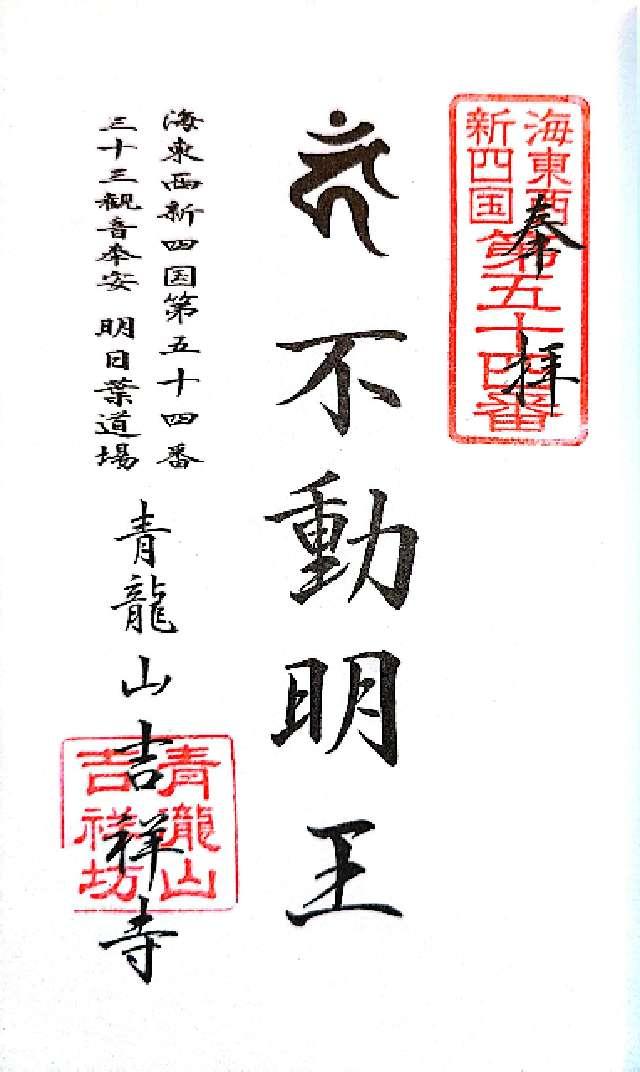 海東西
新四国
第五十四番
奉拝
不動明王
海東西新四国第五十四番
三十三観音奉安 明日葉道場
青龍山吉祥寺
青瀧山
吉祥坊